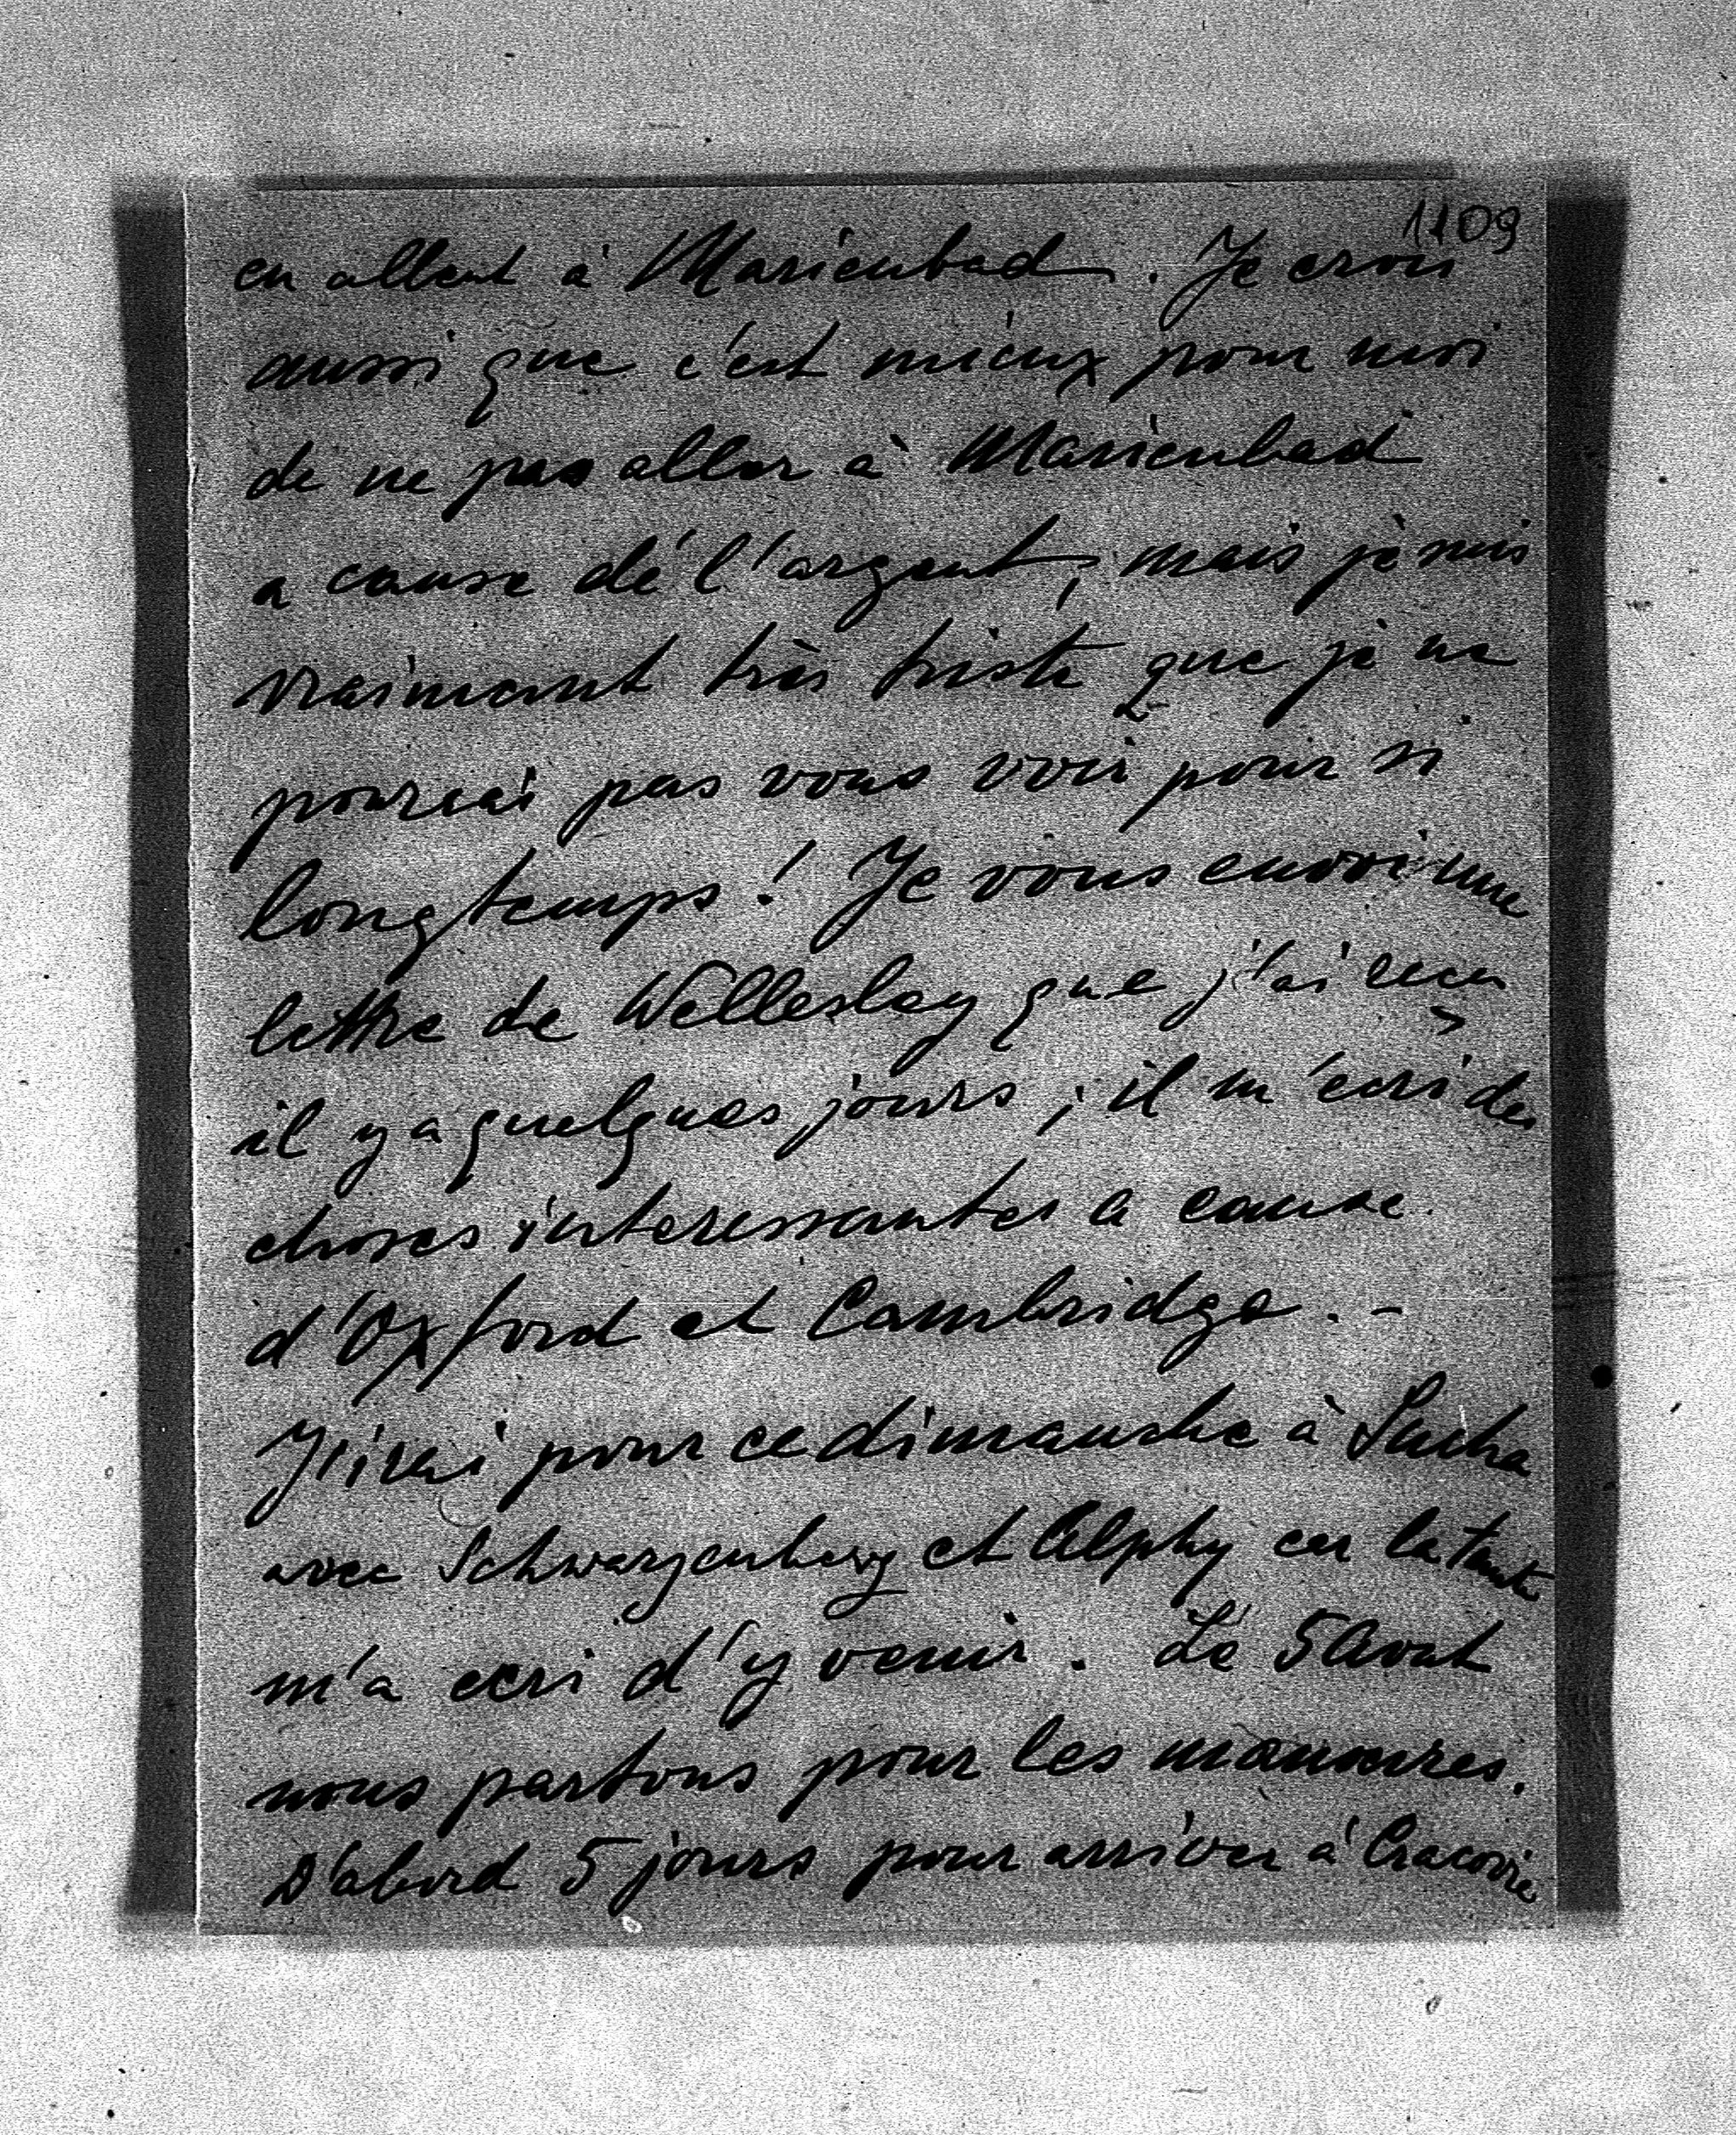 1109
en allent à Marienbad. Je crois
aussi que c'est mieux pour moi
de ne pas aller à Marienbad
a cause de l'argent, mais je suis
vraimant très triste que je ne
pourrai pas vous voir pour si
longtemps! Je vous envoi une
lettre de Wellesley que j'ai recu
il y a quelques jours; il m'ecri des
choses interessantes a cause
d'Oxford et Cambridge. -
J'irai pour ce dimanche à Sucha
avec Schwarzenberg et Alphy car la tante
m'a ecri d'y venir. Le 5 Aout
nous partons pour les manouvres.
D'abord 5 jours pour arriver à Cracovie